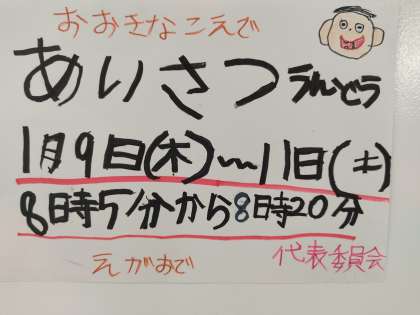 おおきなこえで
あいさつうんどう
1月9日(木)～11日(土)
8時5分から8時20分
えがおで
代表委員会